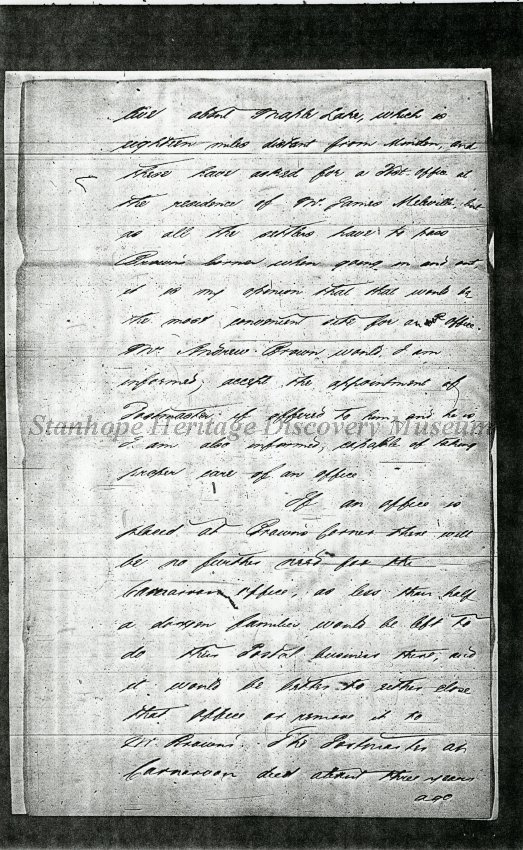 live about Maple Lake, which is
eighteen miles distant from Minden, and
these have asked for a Post office at
the residence of Mr. James Melville, but
as all the settlers have to pass
Brown's Corner when going in and out,
it is my opinion that that would be
the most convenient site for an Office.
Mr. Andrew Brown would, I am
informed, accept the appointment of
Postmaster if offered to him, and he is
Stanhope Heritage Discovery Museum
I am also informed, capable of taking
proper care of an office
If an office is
placed at Brown's Corner there will
be no further need for the
Carnarvon Office, as less than half
a dozen families would be left to
do their Postal business there, and
it would be better to either close
that office or remove it to
Mr. Brown's. The Postmaster at
Carnarvon died about three years
ago